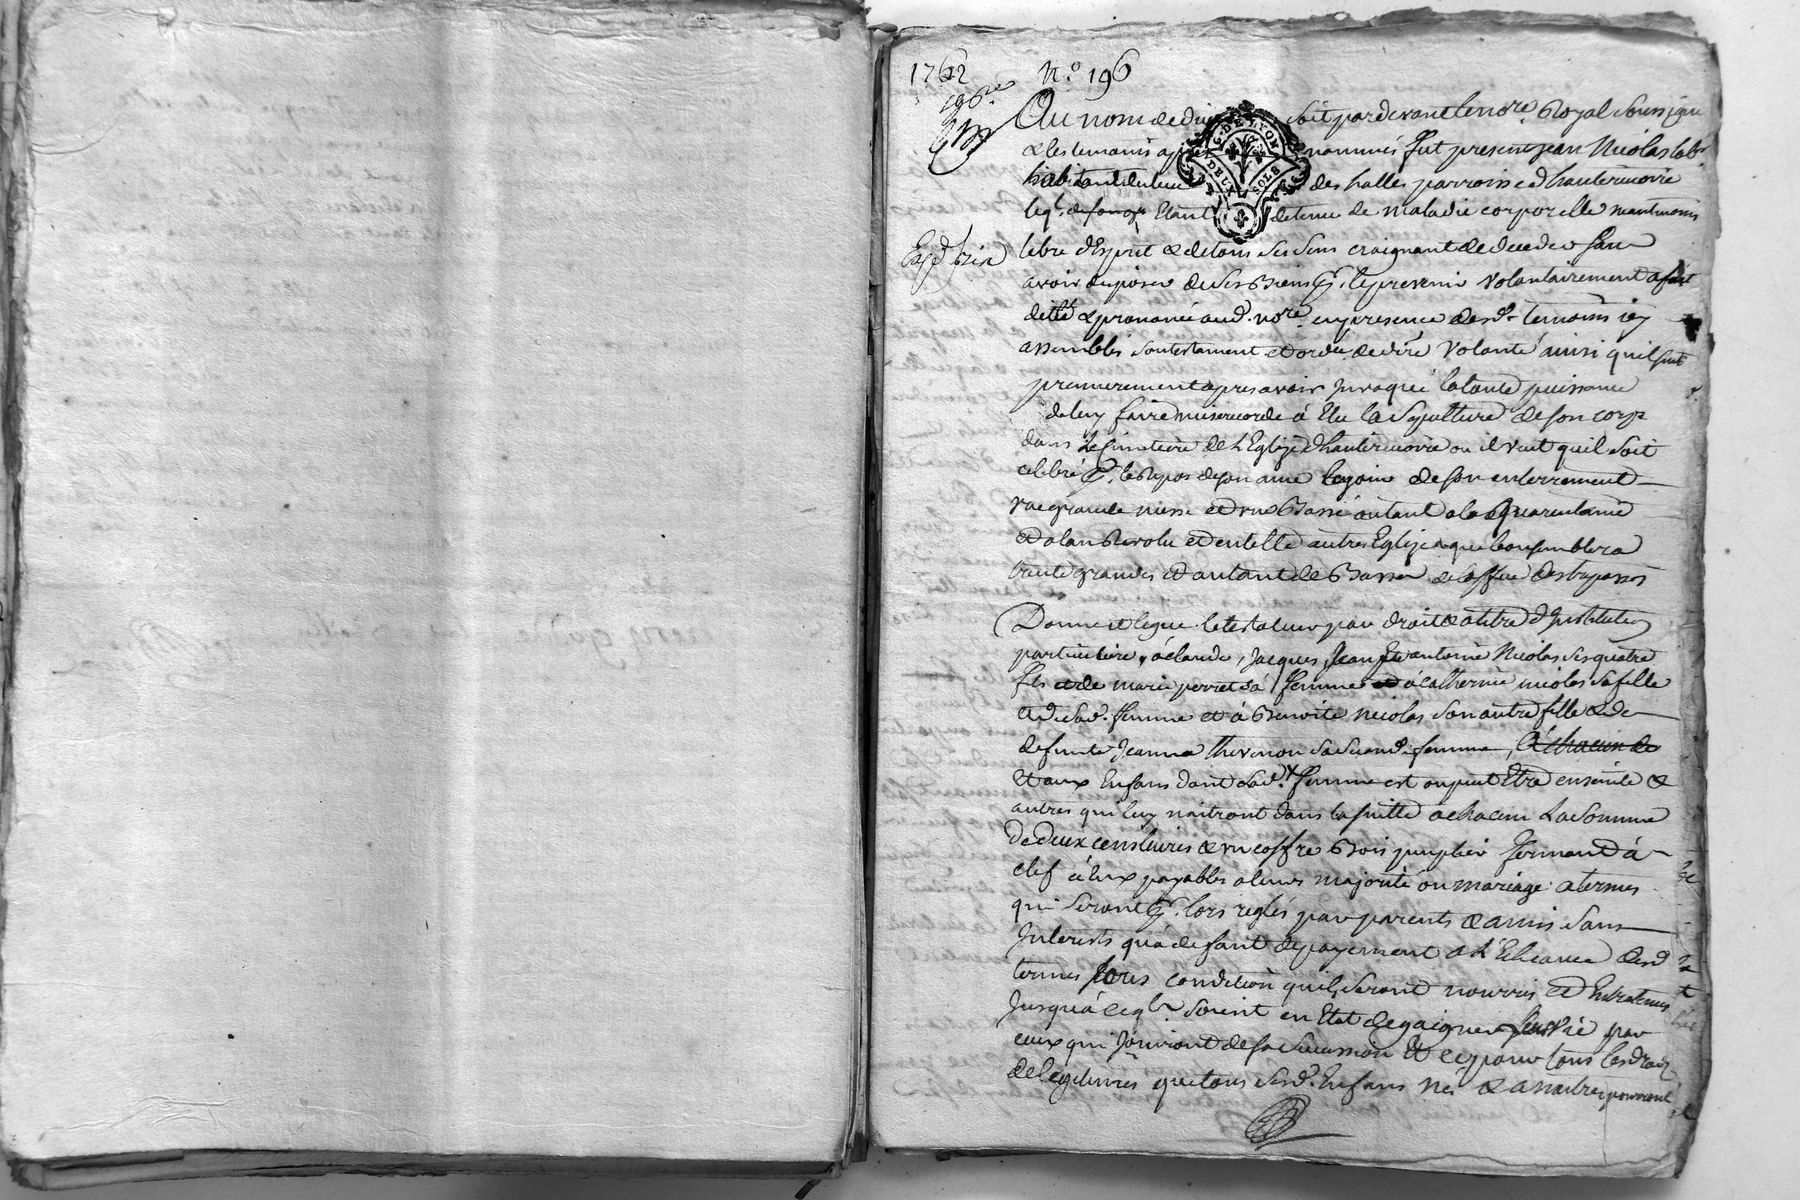 1762 N.° 196
196.re
Au nom de dieu soit pardevant le no.re Royal soussigné
& les temoins apres nommés fut present jean Nicolas lab.r
habitant du lieu des halles parroisse d'hauterivoire
leq.l de son gré Etant detenu de maladie corporelle neantmoins
Exp.d
libre d'Esprit & de tous ses sens craignant de deceder sans
avoir disposer de ses Biens p.r le prevenir volontairement a fait
dicté & prononcé aud. no.re en presence desd. temoins icy
assemblés son testament et ord.ce de d.re volonté ainsi quil suit
premierement apres avoir invoqué la toute puissance
de luy faire misericorde à Elu la sepulture de son corps
dans le Cimetiere de l'Eglize d'hauterivoire ou il veut quil soit
celebré p.r le Repos de son ame le jour de son enterrement
une grande messe et une Basse autant a la quarantaine
et a lan Revolu et en telles autres Eglizes que bon semblera
trente grandes et autant de Basses de l'office des trepassés
Donne et legue le testateur par droit & a titre d'Institution
particuliere, à claude, Jacques, Jean et antoine Nicolas ses quatre
fils et de marie perret sa femme à catherine nicolas sa fille
et de sad. femme et à Benoite nicolas son autre fille & de
defunte Jeanne thevenon sa seconde femme, à chacun de
Et aux Enfans dont sad. femme est ou peut Etre enceinte &
autres qui luy naitront dans la suitte a chacun La somme
De deux cens livres & un coffre Bois peuplier fermant à
clef à Eux payables a leurs majorité ou mariage a termes
qui seront p.r lors reglés par parents & amis sans
Interests qu'a defaut de payement a l'Echeance desd
termes sous condition quils seront nourris et Entretenus
Jusqu'à ce q.ls soient en Etat de gaigner leur vie par
ceux qui Jouiront de sa succession Et ce pour tous les droits
de legitimes que tous sesd. Enfans nés & a naitre pourront